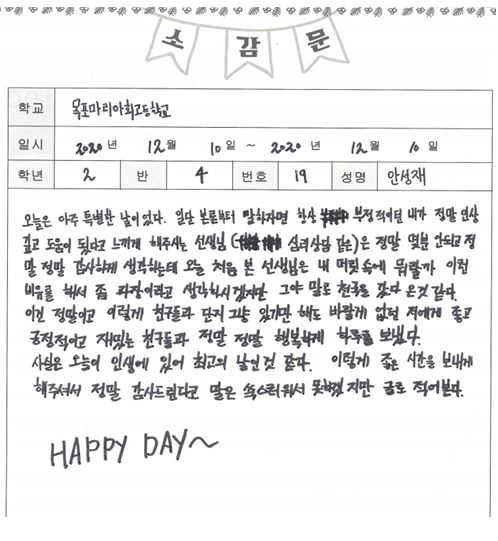 소감문
학교 목포마리아회고등학교
일시 2020 년 12 월 10 일 ~ 2020 년 12 월 10 일
학년 2 반 4 번호 19 성명 안성재
오늘은 아주 특별한 날이었다. 일단 본론부터 말하자면 항상 부정적이던 내가 정말 인상
깊고 도움이 됐다고 느끼게 해주시는 선생님( 심리상담 같은)은 정말 몇분 안되고 정
말 정말 감사하게 생각하는데 오늘 처음 본 선생님은 내 머릿속에 뭐랄까 이런
비유를 해서 좀 과장이라고 생각하시겠지만 그야 말로 천국을 갔다 온것 같다.
이건 정말이고 이렇게 친구들과 단지 그냥 있기만 해도 바랄게 없던 저에게 좋고
긍정적이고 재밌는 친구들과 정말 정말 행복하게 하루를 보냈다.
사실은 오늘이 인생에 있어 최고의 날인것 같다. 이렇게 좋은 시간을 보내게
해주셔서 정말 감사드린다고 말은 쑥스러워서 못하겠지만 글로 적어본다.
HAPPY DAY~